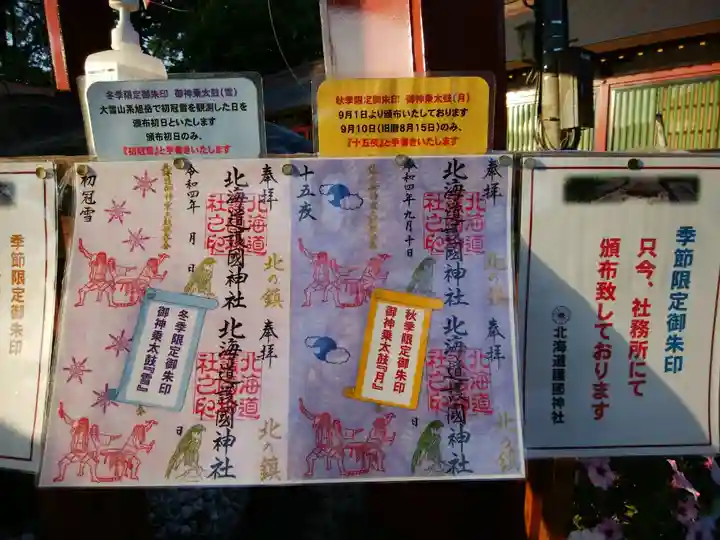 冬季限定御朱印 御神乗太鼓(雪)
大雪山系旭岳で初冠雪を観測した日を
頒布初日といたします
頒布初日のみ、
『初冠雪』と手書きいたします
秋季限定御朱印 御神乗太鼓(月)
9月1日より頒布いたしております
9月10日(旧暦8月15日)のみ、
『十五夜』と手書きいたします
季節限定御朱印
奉拝
北海道護國神社
北海道
護國神
社之印
北の鎮
令和四年 月 日
初冠雪
奉拝
北海道護國神社
北海道
護國神
社之印
北の鎮
日
冬季限定御朱印
御神乗太鼓『雪』
奉拝
北海道護國神社
北海道
護國神
社之印
令和四年九月十日
十五夜
奉拝
北海道護國神社
北海道
護國神
社之印
北の鎮
日
秋季限定御朱印
御神乗太鼓『月』
季節限定御朱印
只今、社務所にて
頒布致しております
北海道護國神社